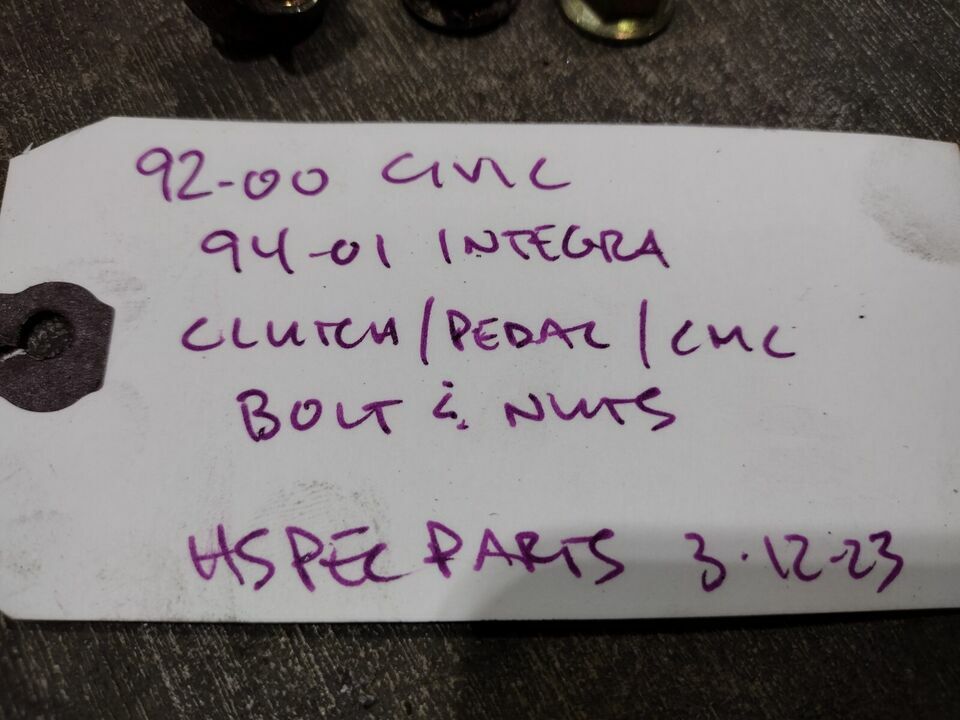 92-00 CIVIC
94-01 INTEGRA
CLUTCH/PEDAL/CMC
BOLT & NUTS
HSPEC PARTS 3-12-23